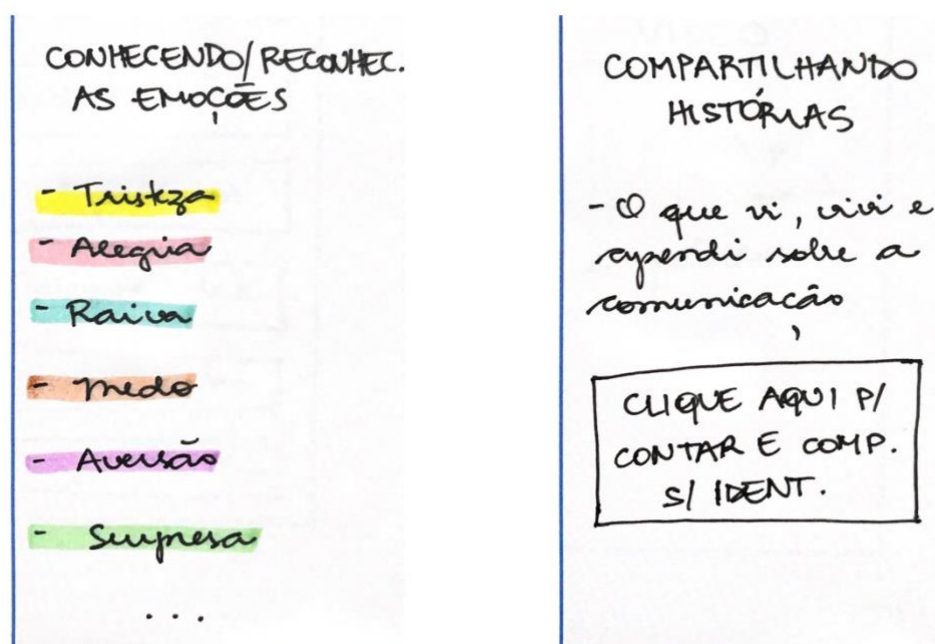 CONHECENDO/RECONHEC.
AS EMOÇÕES
- Tristeza
- Alegria
- Raiva
- medo
- Aversão
- Surpresa
...
COMPARTILHANDO
HISTÓRIAS
- O que vi, vivi e
aprendi sobre a
comunicação
CLIQUE AQUI P/
CONTAR E COMP.
S/ IDENT.